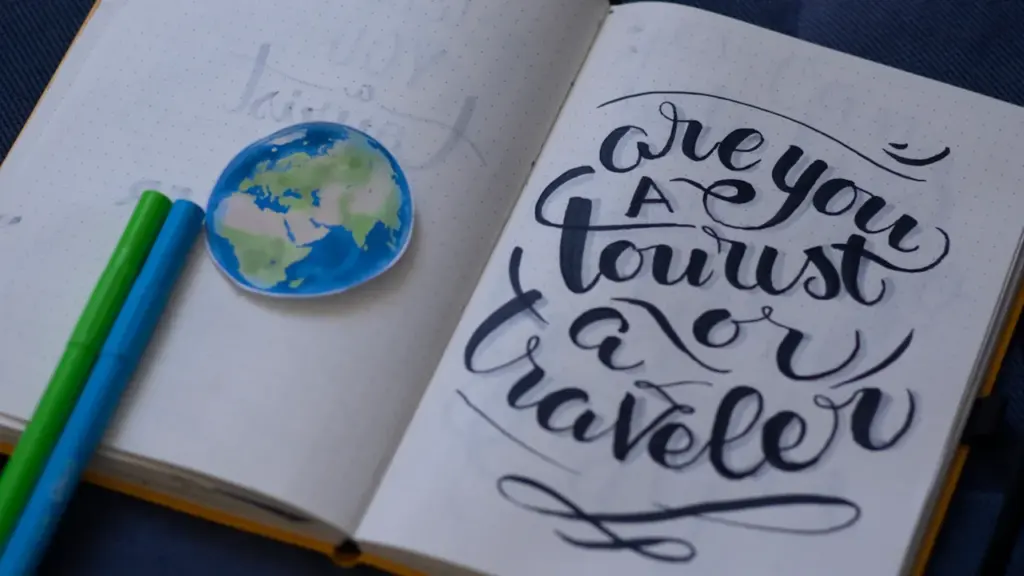 are you
A
tourist
a or
traveler